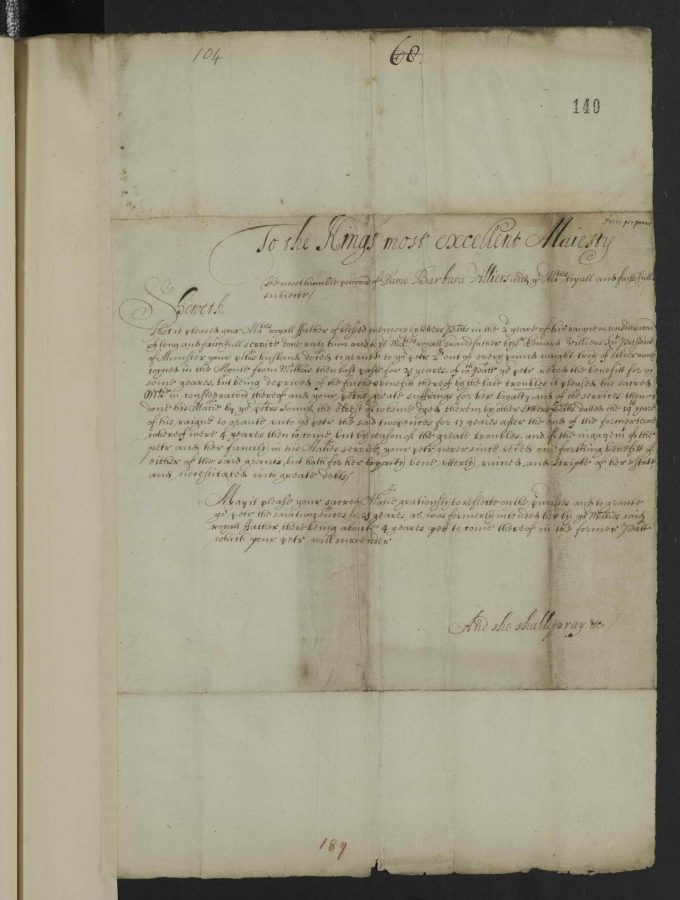 104
60
140
To the Kings most excellent Maiesty
The most humble peticon of Dame Barbara Villiers yor Maties loyall and faithfull
subiecte/
Sheweth
That it pleased your Maties royall ffather of blessed memory by letters Patts in the yeare of his raigne in consideracon
of long and faithfull service done unto him and to yor Maties royall grandfather by Sr Edward Villiers Lo: President
of Munster your petrs husband to grante to yor petr out of every pound waight troy of silver mony
coyned in the Mynte from then last past for yeares, of wch Patt yor petr the benefitt for
some yeares, but being deprived of the farther benefitt thereof by the late troubles it pleased his sacred
Matie in consideracon thereof and your petrs greate suffrings for her loyalty and of the services then
done his Matie by yor petrs sonns, the eldest of whome dyed therein, by other letters Patts dated the 19 yeare
of his raigne to grante unto yor petr the said twopences for 17 yeares after the end of the former terme
whereof were 4 yeares then to come, but by reason of the great troubles, and of the of the
petr and her family in his Maties service, your petr never since one farthing benefitt of
either of the said grants, but hath for her loyalty bene utterly ruined, and stripte of her estate
and necessitated into greate debts/
May it please your sacred Matie gratiously to reflecte on the premises and to grante
yor petr the said twopences for yeares, as was formerly intended her by yor Maties said
royall ffather there being aboute 4 yeares yett to come thereof in the former Patt
which your petr will surrender
And she shall pray &c
189